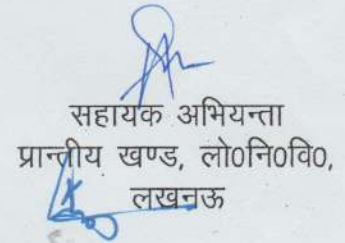 सहायक अभियन्ता
प्रान्तीय खण्ड, लो०नि०वि०,
लखनऊ